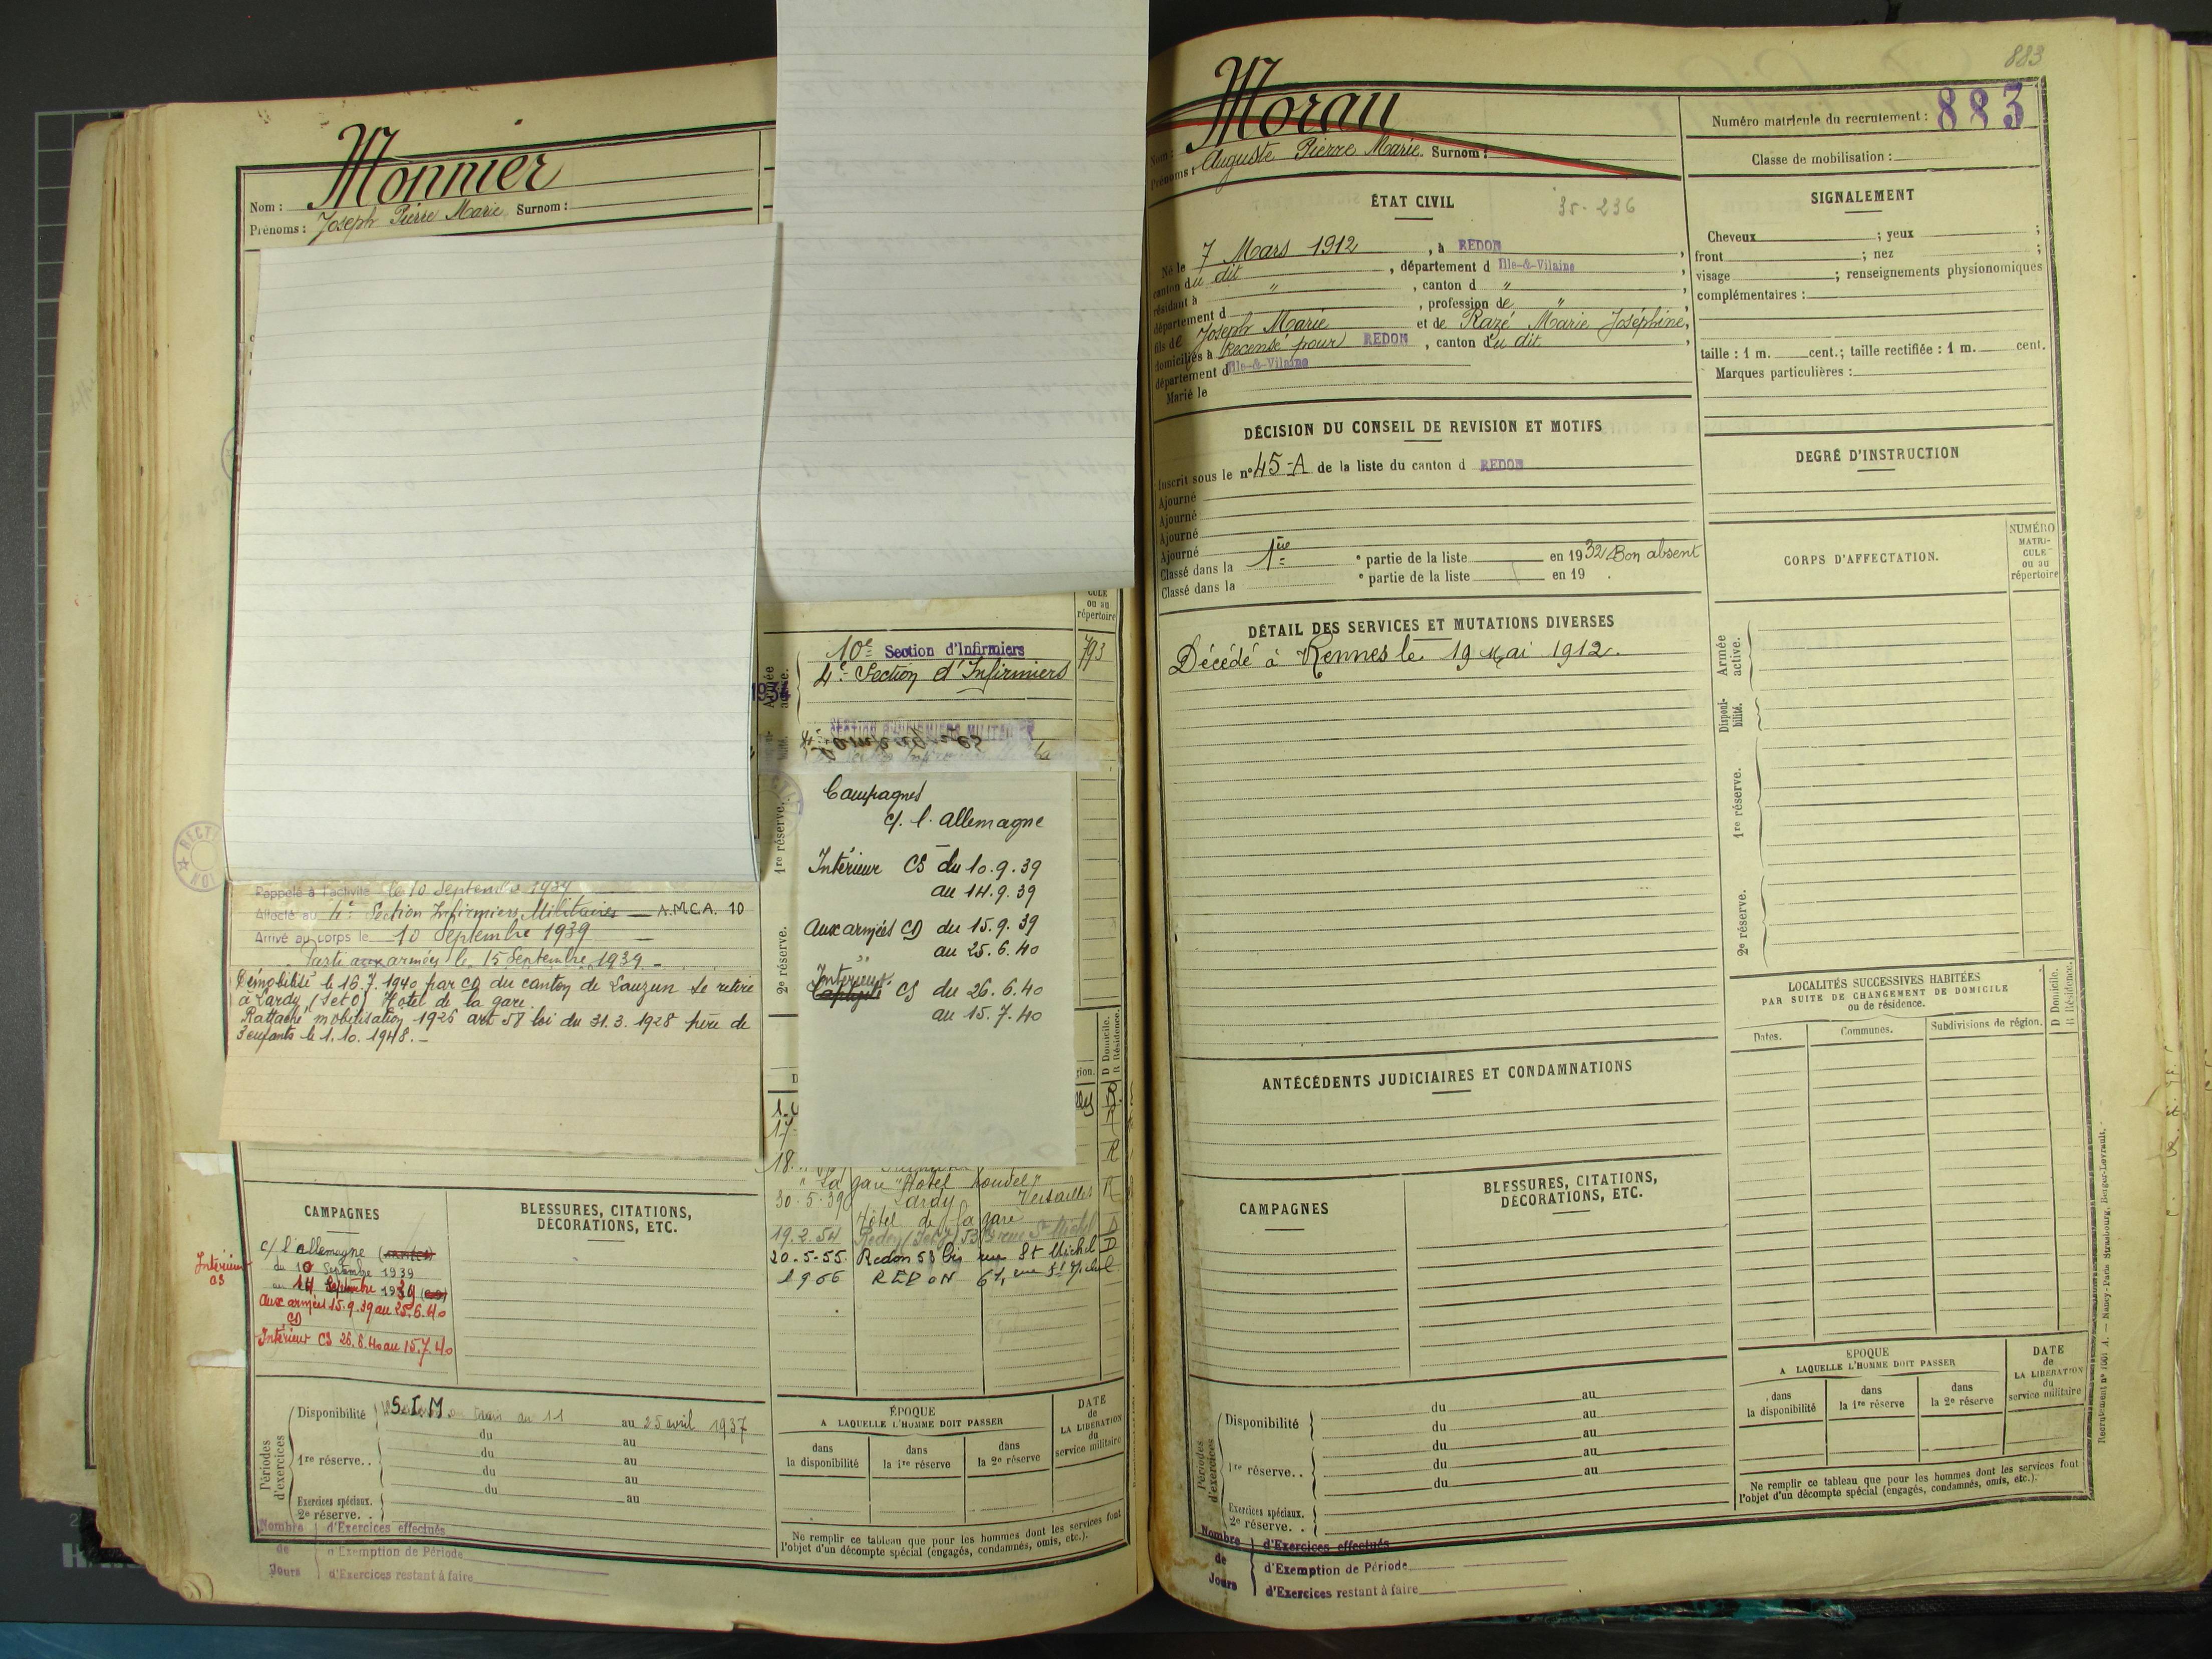 Monnier
Nom :
Prénoms : Joseph Pierre Marie Surnom :
CULE
ou au
répertoire
Armée
active.
10e Section d'Infirmiers
793
4e Section d'Infirmiers
Campagnes
c/. l. allemagne
Intérieur CS du 10.9.39
au 14.9.39
Aux armées CD du 15.9.39
au 25.6.40
Intérieur CS du 26.6.40
au 15.7.40
1re réserve.
2e réserve.
Rappelé à l'activité le 10 Septembre 1939
Affecté au 4e Section Infirmiers Militaires — A.M.C.A. 10
Arrivé au corps le 10 Septembre 1939
Parti aux armées le 15 Septembre 1939
Démobilisé le 16.7.1940 par CD du canton de Lauzun se retire
à Lardy (S et O) Hôtel de la gare.
Rattaché mobilisation 1926 art 58 loi du 31.3.1928 père de
3 enfants le 1.10.1948.
D Domicile.
R Résidence.
30.5.39 Lardy Versailles R
Hôtel de la gare
19.2.54
20.5-55. Redon 53 bis rue St Michel D
1966 REDON 61, rue St Michel
CAMPAGNES
c/ l'allemagne
Intérieur
CS
du 10 Septembre 1939
au 14 Septembre 1939
Aux armées 15.9.39 au 25.6.40
CD
Intérieur CS 26.6.40 au 15.7.40
BLESSURES, CITATIONS,
DÉCORATIONS, ETC.
Périodes
d'exercices
Disponibilité
S.I.M. au 25 avril 1937
du au
1re réserve..
du au
du au
du au
Exercices spéciaux.
2e réserve. .
Nombre
de
Jours
d'Exercices effectués
d'Exemption de Période
d'Exercices restant à faire
ÉPOQUE
A LAQUELLE L'HOMME DOIT PASSER
dans
la disponibilité
dans
la 1re réserve
dans
la 2e réserve
DATE
de
LA LIBÉRATION
du
service militaire
Ne remplir ce tableau que pour les hommes dont les services font
l'objet d'un décompte spécial (engagés, condamnés, omis, etc.).
883
Moran
Nom :
Prénoms : Auguste Pierre Marie Surnom :
Numéro matricule du recrutement : 883
Classe de mobilisation :
ÉTAT CIVIL
35-236
Né le 7 Mars 1912, à REDON,
canton du dit, département d Ille-&-Vilaine,
résidant à ", canton d ",
département d, profession de ",
fils de Joseph Marie et de Razé Marie Joséphine,
domiciliés à Recensé pour REDON, canton du dit,
département d Ille-&-Vilaine
Marié le
SIGNALEMENT
Cheveux ; yeux ;
front ; nez ;
visage ; renseignements physionomiques
complémentaires :
taille : 1 m. cent.; taille rectifiée : 1 m. cent.
Marques particulières :
DÉCISION DU CONSEIL DE REVISION ET MOTIFS
Inscrit sous le n° 45-A de la liste du canton d REDON
Ajourné
Ajourné
Ajourné
Ajourné
Classé dans la 1ère e partie de la liste en 1932 Bon absent
Classé dans la e partie de la liste en 19 .
DEGRÉ D'INSTRUCTION
CORPS D'AFFECTATION.
NUMÉRO
MATRI-
CULE
ou au
répertoire
DÉTAIL DES SERVICES ET MUTATIONS DIVERSES
Décédé à Rennes le 19 Mai 1912.
Armée
active.
Disponi-
bilité.
1re réserve.
2e réserve.
LOCALITÉS SUCCESSIVES HABITÉES
PAR SUITE DE CHANGEMENT DE DOMICILE
ou de résidence.
Dates.
Communes.
Subdivisions de région.
D Domicile.
R Résidence.
ANTÉCÉDENTS JUDICIAIRES ET CONDAMNATIONS
CAMPAGNES
BLESSURES, CITATIONS,
DÉCORATIONS, ETC.
Périodes
d'exercices
Disponibilité
du au
du au
1re réserve..
du au
du au
du au
Exercices spéciaux.
2e réserve. .
Nombre
de
Jours
d'Exercices effectués
d'Exemption de Période
d'Exercices restant à faire
ÉPOQUE
A LAQUELLE L'HOMME DOIT PASSER
dans
la disponibilité
dans
la 1re réserve
dans
la 2e réserve
DATE
de
LA LIBÉRATION
du
service militaire
Ne remplir ce tableau que pour les hommes dont les services font
l'objet d'un décompte spécial (engagés, condamnés, omis, etc.).
Recrutement n° 1001 A. — Nancy-Paris Strasbourg, Berger-Levrault.